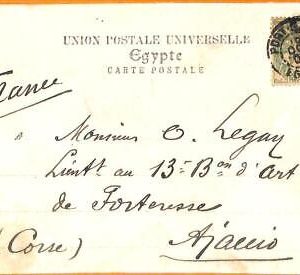 UNION POSTALE UNIVERSELLE
Egypte
CARTE POSTALE
France
a Monsieur O. Legay
Lieutt au 13e Bon d'Art
de Forteresse
Ajaccio
(Corse)
PORT